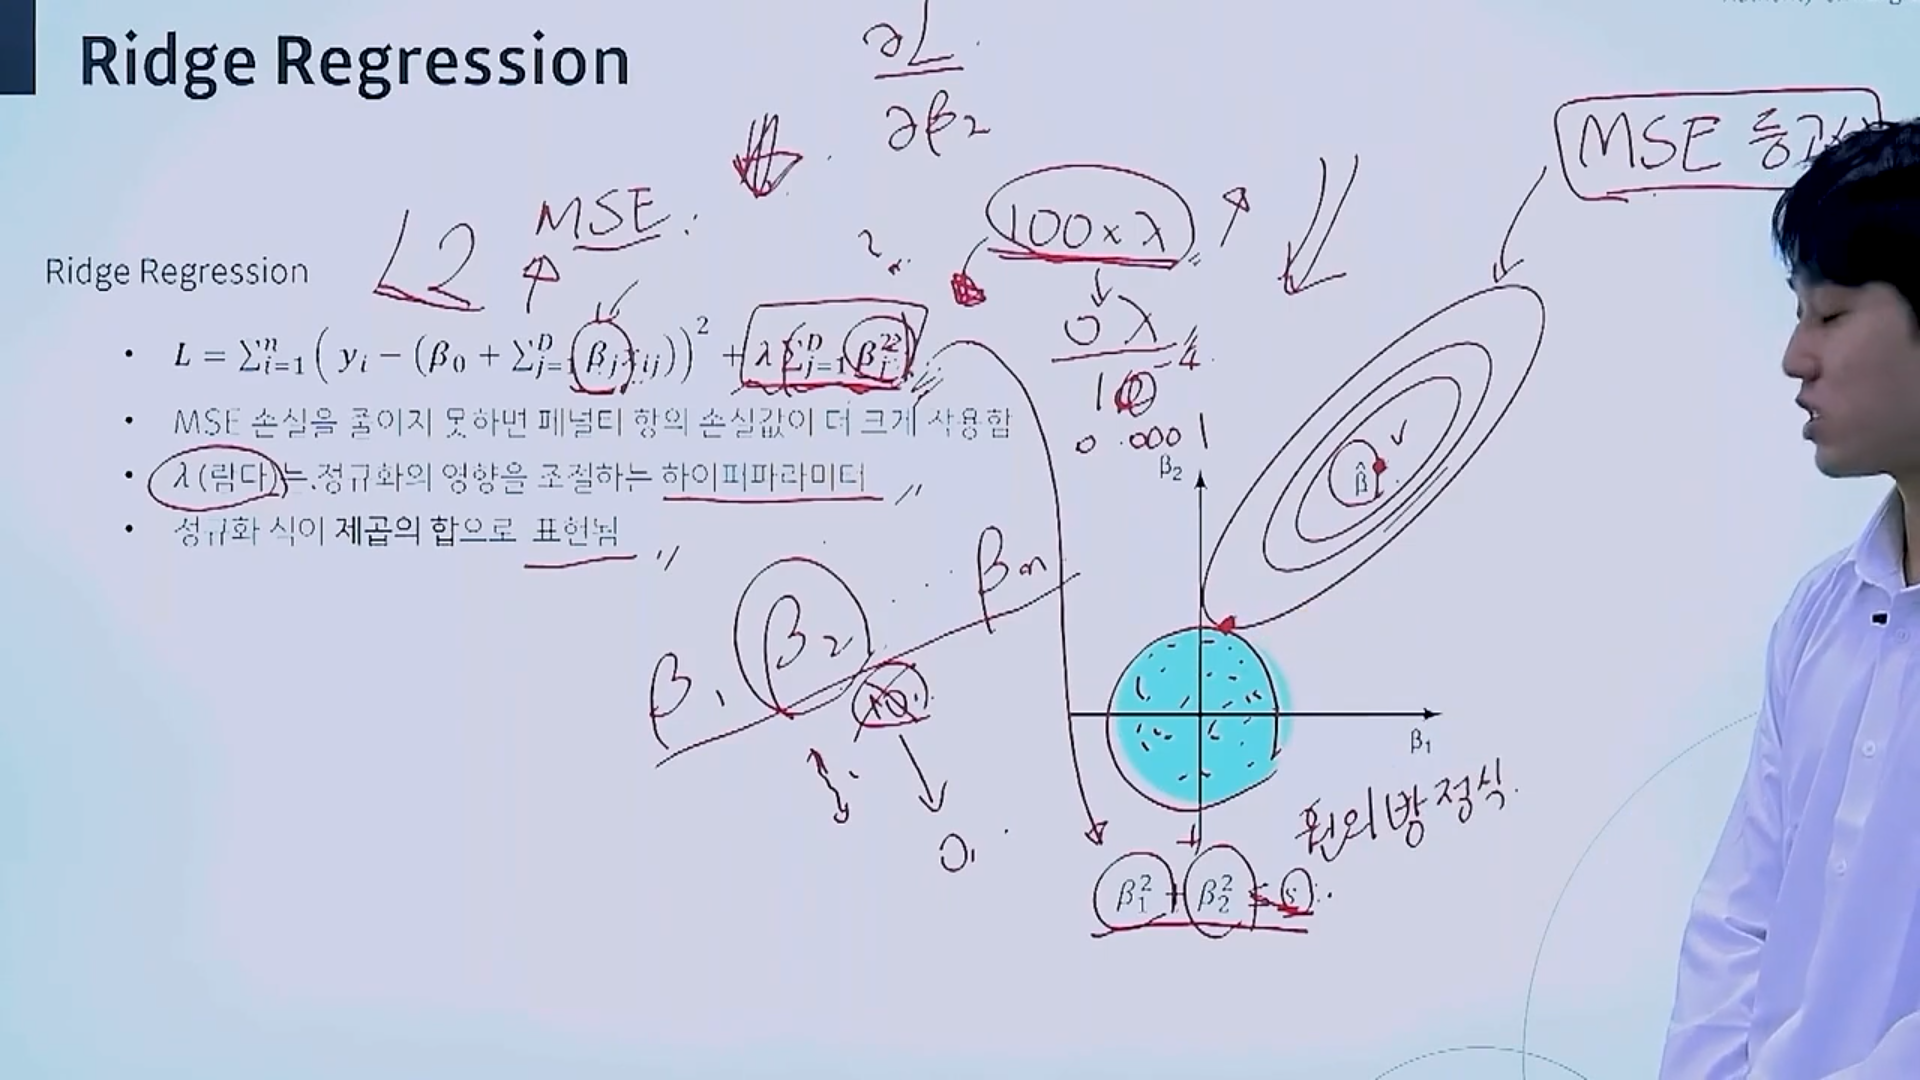 Ridge Regression
∂L
∂β₂
MSE 등고
L2
MSE :
100 x λ
Ridge Regression
0 λ
• L = ∑ⁿᵢ₌₁ ( yᵢ − (β₀ + ∑ᵖⱼ₌₁ βⱼxᵢⱼ))² + λ∑ᵖⱼ₌₁ βⱼ²
• MSE 손실을 줄이지 못하면 페널티 항의 손실값이 더 크게 사용함
0.0001
• λ(람다)는 정규화의 영향을 조절하는 하이퍼파라미터
β₂
β̂
• 정규화 식이 제곱의 합으로 표현됨
β₁ β₂ ... βₘ
β₁
0.
원의 방정식.
β₁² + β₂² ≤ s